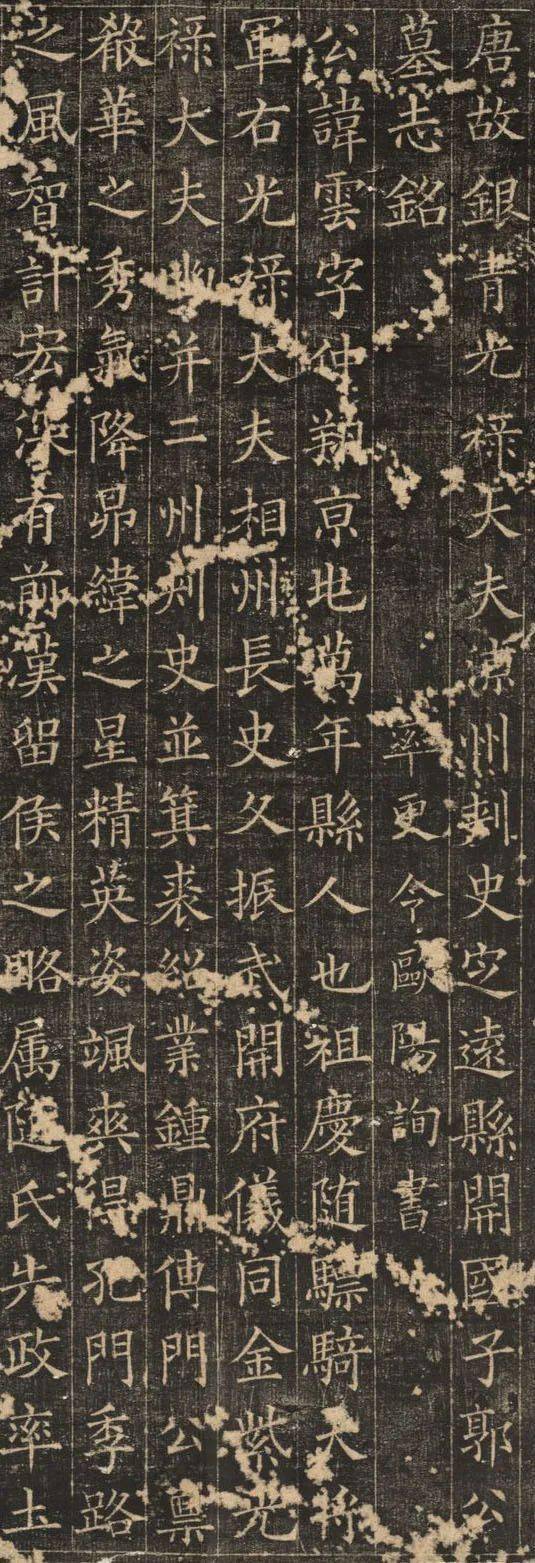 唐故銀青光祿大夫涼州刺史定遠縣開國子郭公
墓志銘 率更令歐陽詢書
公諱雲字仲翔京地萬年縣人也祖慶隨驃騎大將
軍右光祿大夫相州長史父振武開府儀同金紫光
祿大夫幽并二州刺史並箕裘紹業鍾鼎傳門公稟
殽華之秀氣降昴緯之星精英姿颯爽得孔門季路
之風智計宏深有前漢留侯之略属隨氏失政率土